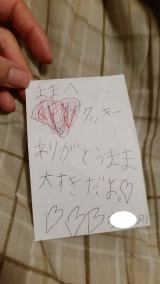 ままへ
クッキー
ありがとうまま
大すきだよ♡
♡♡♡ RI